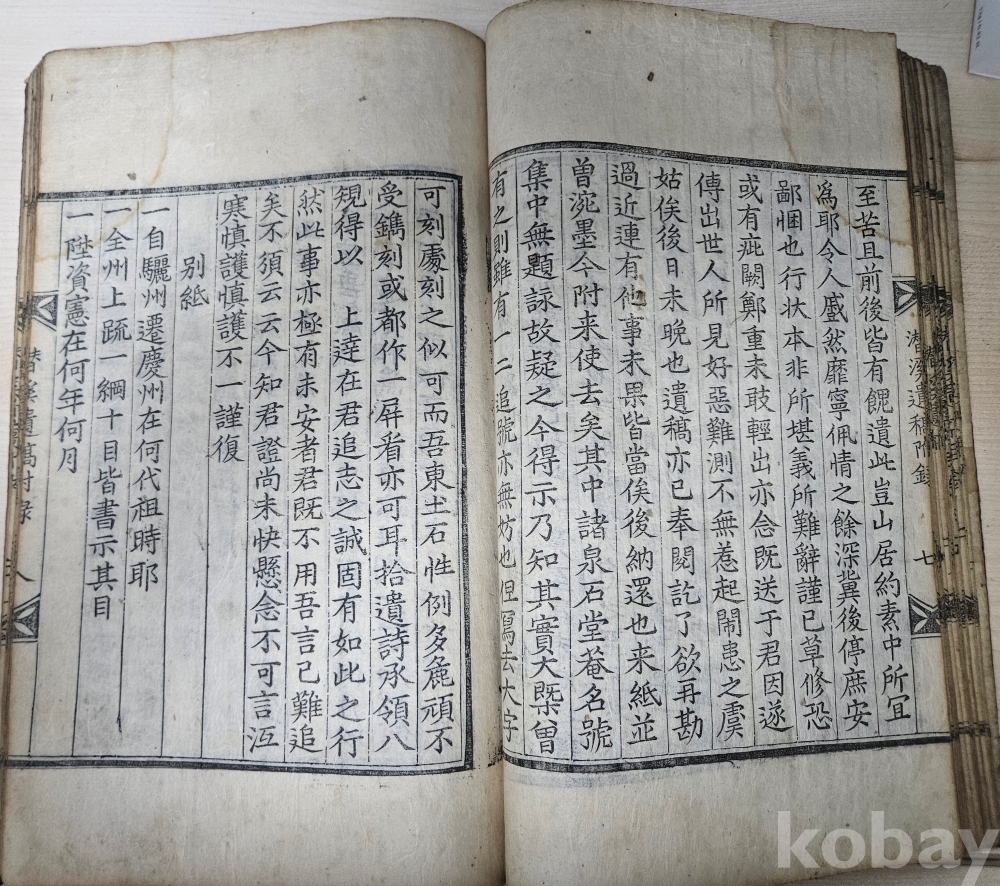 至苦且前後皆有餽遺此豈山居約素中所宜
爲耶令人蹙然靡寧佩情之餘深冀後停庶安
鄙悃也行狀本非所堪義所難辭謹已草修恐
或有疵闕鄭重未敢輕出亦念既送于君因遂
傳出世人所見好惡難測不無惹起鬧患之虞
姑俟後日未晩也遺稿亦已奉閱訖了欲再勘
過近連有他事未果皆當俟後納還也来紙並
曾涴墨今附来使去矣其中諸泉石堂菴名號
集中無題詠故疑之今得示乃知其實大槩曾
有之則雖有一二追號亦無妨也但寫去大字
潜溪遺稿附錄
七
可刻處刻之似可而吾東土石性例多麁頑不
受鐫刻或都作一屏看亦可耳拾遺詩承領八
規得以 上達在君追志之誠固有如此之行
然此事亦極有未安者君既不用吾言已難追
矣不須云云今知君證尚未快懸念不可言沍
寒慎護慎護不一謹復
別紙
一自驪州遷慶州在何代祖時耶
一全州上疏一綱十目皆書示其目
一陞資憲在何年何月
八
kobay